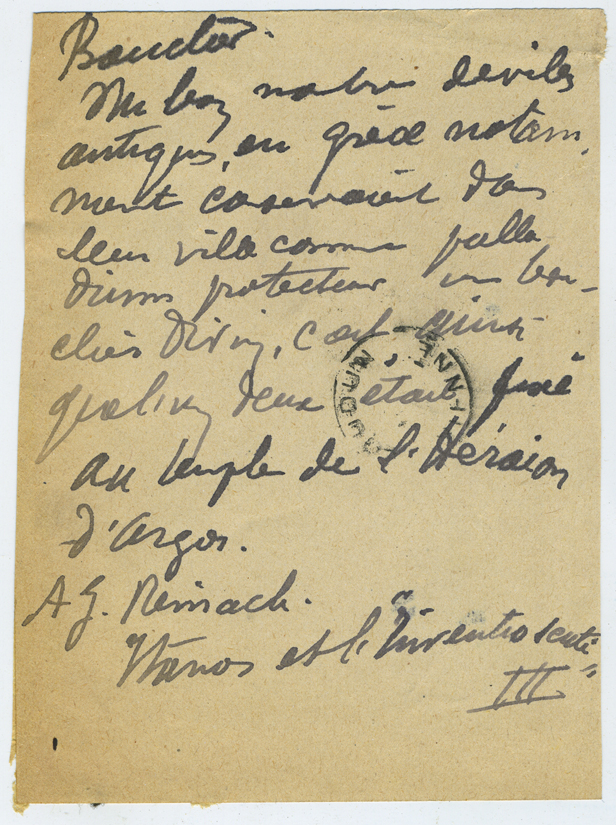 Bouclier.
Un bon nombre de villes
antiques, en grèce notam
ment conservaient dans
leur ville comme palla
diums protecteur un bou-
clier divin, c'est ainsi
qu'elin deux était fixé
au temple de l'Héraion
d'Argos.
A. J. Reinach.
Itanos et l'"Inventio scuti"
III